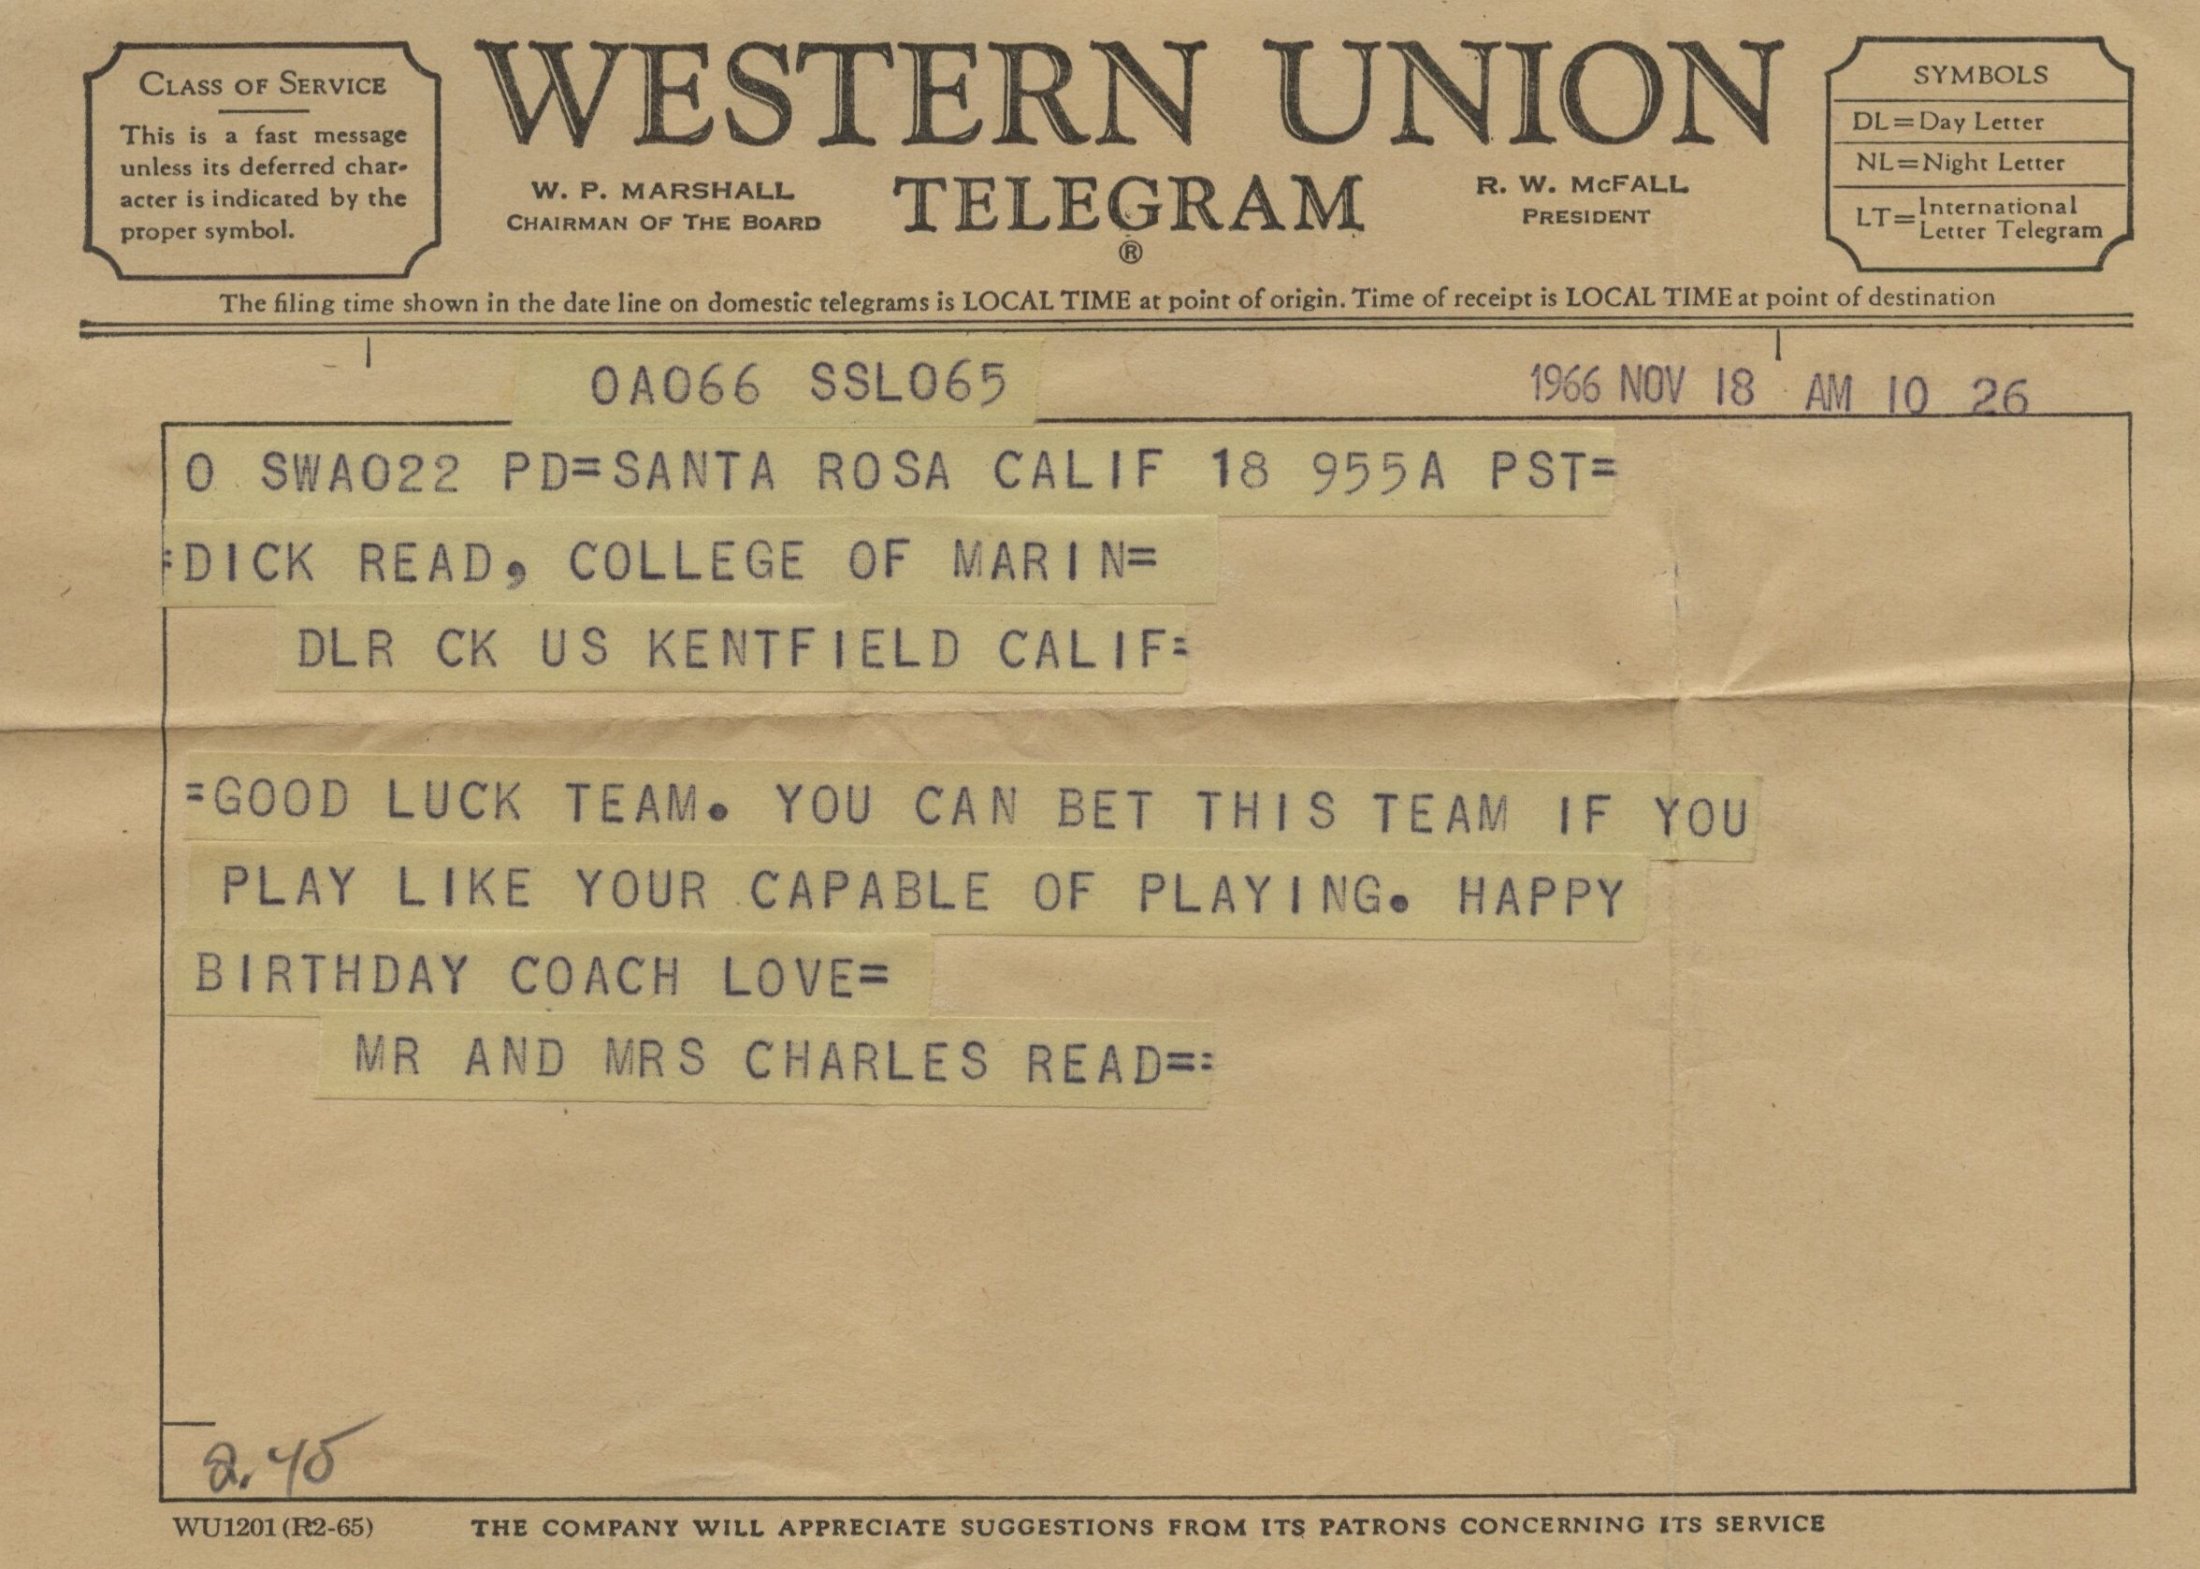 CLASS OF SERVICE
This is a fast message
unless its deferred char-
acter is indicated by the
proper symbol.
WESTERN UNION
TELEGRAM
®
W. P. MARSHALL
CHAIRMAN OF THE BOARD
R. W. McFALL
PRESIDENT
SYMBOLS
DL=Day Letter
NL=Night Letter
LT=International
Letter Telegram
The filing time shown in the date line on domestic telegrams is LOCAL TIME at point of origin. Time of receipt is LOCAL TIME at point of destination
OA066 SSL065
1966 NOV 18 AM 10 26
O SWA022 PD=SANTA ROSA CALIF 18 955A PST=
=DICK READ, COLLEGE OF MARIN=
DLR CK US KENTFIELD CALIF=
=GOOD LUCK TEAM. YOU CAN BET THIS TEAM IF YOU
PLAY LIKE YOUR CAPABLE OF PLAYING. HAPPY
BIRTHDAY COACH LOVE=
MR AND MRS CHARLES READ==
2.45
WU1201 (R2-65)
THE COMPANY WILL APPRECIATE SUGGESTIONS FROM ITS PATRONS CONCERNING ITS SERVICE